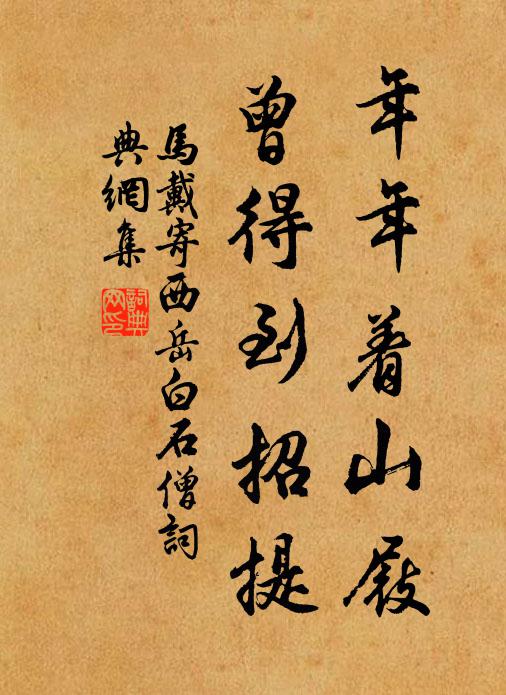 年年着山屐
曾得到招提
馬戴寄西岳白石僧詞
典網集
詞典網印